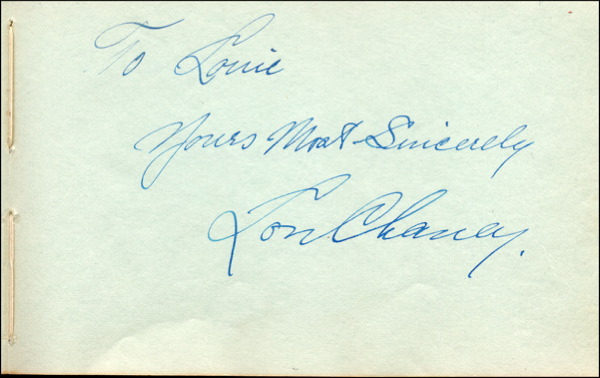 To Louie
Yours Most Sincerely
Lon Chaney.